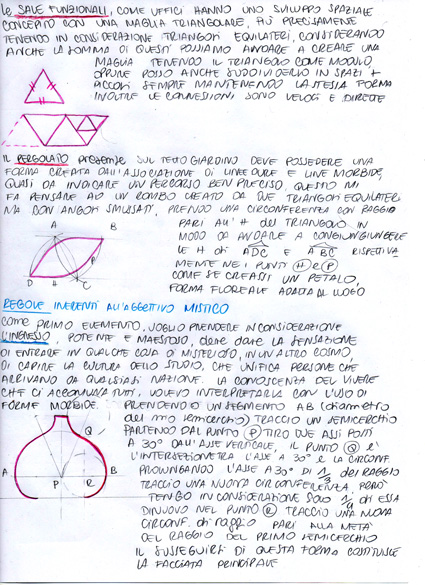 le SALE FUNZIONALI, COME UFFICI HANNO UNO SVILUPPO SPAZIALE
CONCEPITO CON UNA MAGLIA TRIANGOLARE, PIÙ PRECISAMENTE
TENENDO IN CONSIDERAZIONE TRIANGOLI EQUILATERI, CONSIDERANDO
ANCHE LA SOMMA DI QUESTI POSSIAMO ANDARE A CREARE UNA
MAGLIA TENENDO IL TRIANGOLO COME MODULO,
OPPURE POSSO ANCHE SUDDIVIDERLO IN SPAZI +
PICCOLI SEMPRE MANTENENDO LA STESSA FORMA
INOLTRE LE CONNESSIONI SONO VELOCI E DIRETTE
IL PERGOLATO presente SUL TETTO GIARDINO DEVE POSSEDERE UNA
FORMA CREATA DALL'ASSOCIAZIONE DI LINEE DURE E LINEE MORBIDE,
QUASI DA INDICARE UN PERCORSO BEN PRECISO, QUESTO MI
FA PENSARE AD UN ROMBO CREATO DA DUE TRIANGOLI EQUILATERI
MA CON ANGOLI SMUSSATI, PRENDO UNA CIRCONFERENZA CON RAGGIO
A B PARI ALL'H del TRIANGOLO IN
MODO DA ANDARE A CONGIUNGERE
LE H di ADC E ABC RISPETTIVA
MENTE NEI PUNTI H e P
P
D H C COME SE CREASSI UN PETALO,
FORMA FLOREALE ADATTA AL LUOGO
REGOLE INERENTI ALL'AGGETTIVO MISTICO
COME PRIMO ELEMENTO, VOGLIO PRENDERE IN CONSIDERAZIONE
L'INGRESSO, POTENTE E MAESTOSO, deve dare LA SENSAZIONE
DI ENTRARE IN QUALCHE COSA DI MISTERIOSO, IN UN ALTRO COSMO,
DI CAPIRE LA CULTURA DELLO STUDIO, CHE UNIFICA PERSONE CHE
ARRIVANO DA QUALSIASI NAZIONE. LA CONOSCENZA DEL VIVERE
CHE CI ACCOMUNA TUTTI, VOLEVO INTERPRETARLA CON L'USO DI
FORME MORBIDE. PRENDENDO UN SEGMENTO AB (diametro
del mio semicerchio) TRACCIO UN SEMICERCHIO
PARTENDO DAL PUNTO P TIRO DUE ASSI POSTI
Q A 30° DALL'ASSE VERTICALE, IL PUNTO Q È
L'INTERSEZIONE TRA L'ASSE A 30° E LA CIRCONF.
PROLUNGANDO L'ASSE A 30° DI 1/3 del RAGGIO
A B TRACCIO UNA NUOVA CIRCONFERENZA, PERÒ
P R TENGO IN CONSIDERAZIONE SOLO 1/4 di ESSA
DI NUOVO NEL PUNTO R TRACCIO UNA NUOVA
CIRCONF. di raggio PARI ALLA METÀ
DEL RAGGIO DEL PRIMO SEMICERCHIO
IL SUSSEGUIRSI DI QUESTA FORMA COSTITUISCE
LA FACCIATA PRINCIPALE